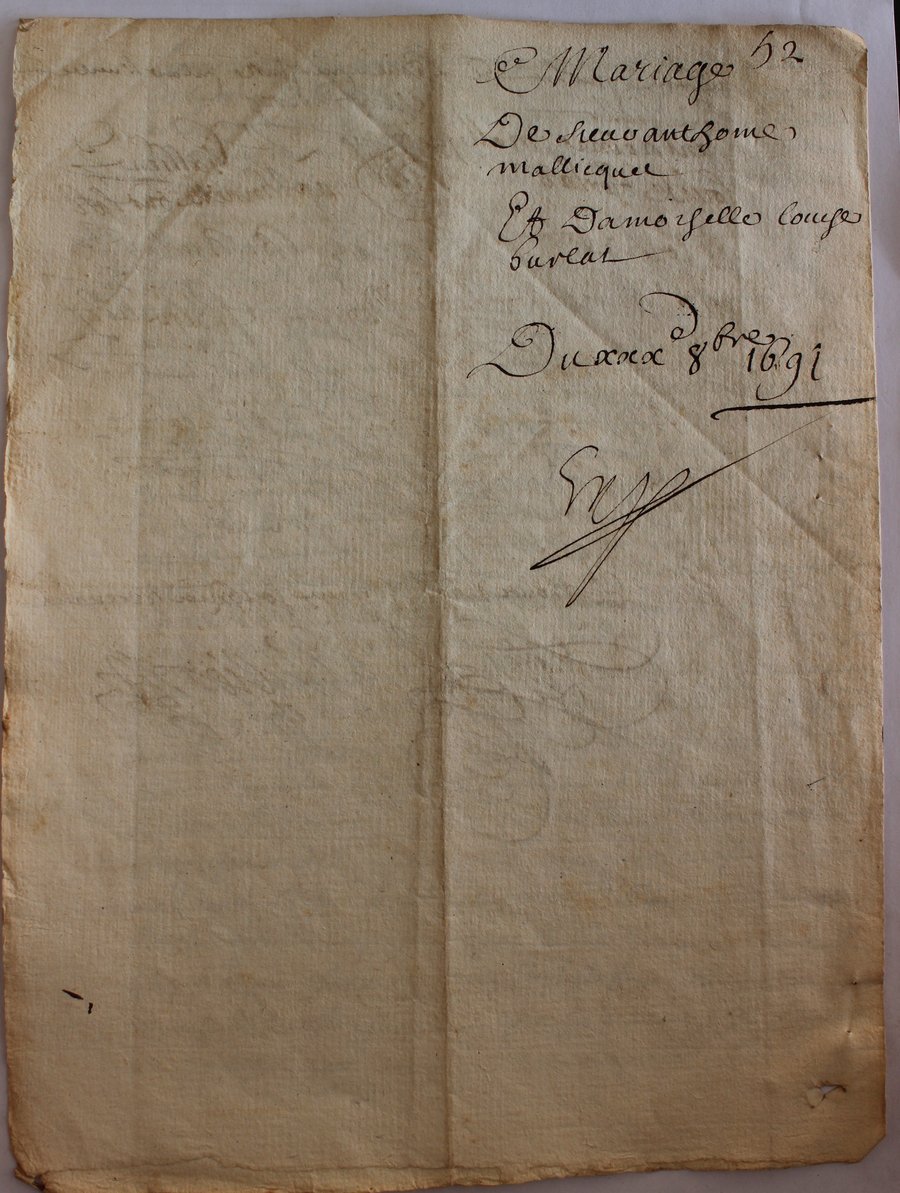 Mariage 52
De sieur anthoine
mallicquet
Et Damoiselle Louise
burlat
Du xxx e 8bre 1691